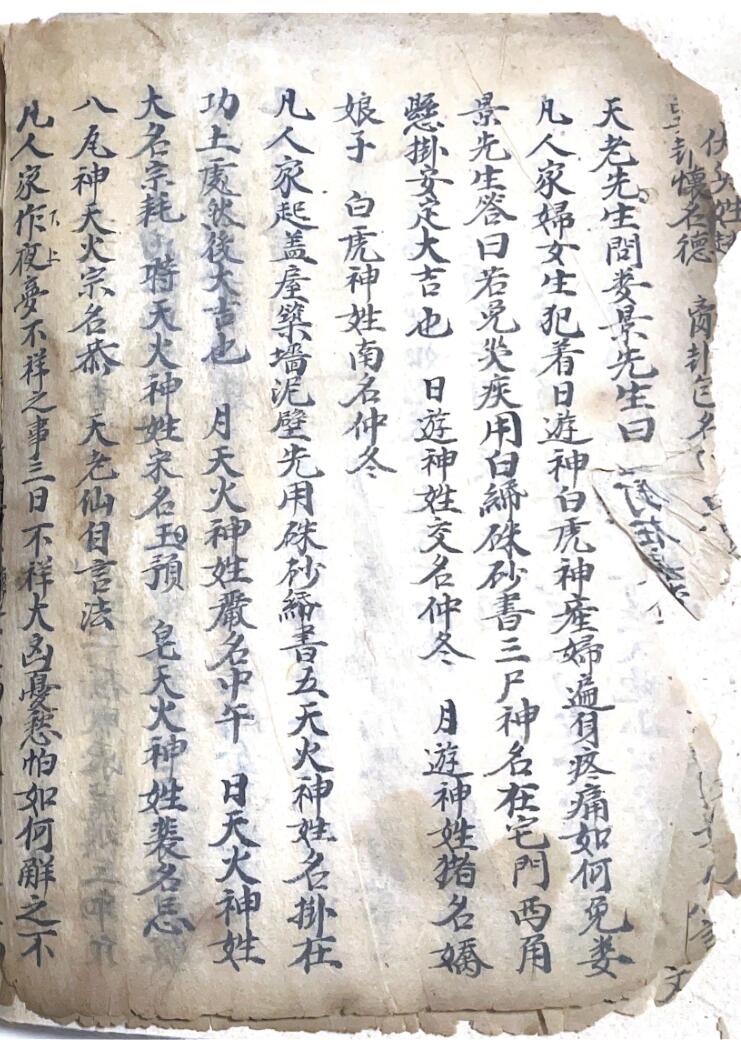 伏
卦懷名德 商卦
天老先生問娄景先生曰
凡人家婦女生犯着日遊神白虎神產婦遍身疼痛如何免娄
景先生答曰若免災疾用白綿硃砂書三尸神名在宅門西角
懸掛安定大吉也 日遊神姓交名仲冬 月遊神姓猪名孎
娘子 白虎神姓南名仲冬
凡人家起盖屋築墙泥壁先用硃砂綿書五天火神姓名掛在
功土處然後大吉也 月天火神姓嚴名中午 日天火神姓
大名宗耗 時天火神姓宋名王預 皂天火神姓裴名忌
八尾神天火宗名恭 天老仙自言法
凡人家作夜夢不祥之事三日不祥大凶憂愁怕如何觧之不